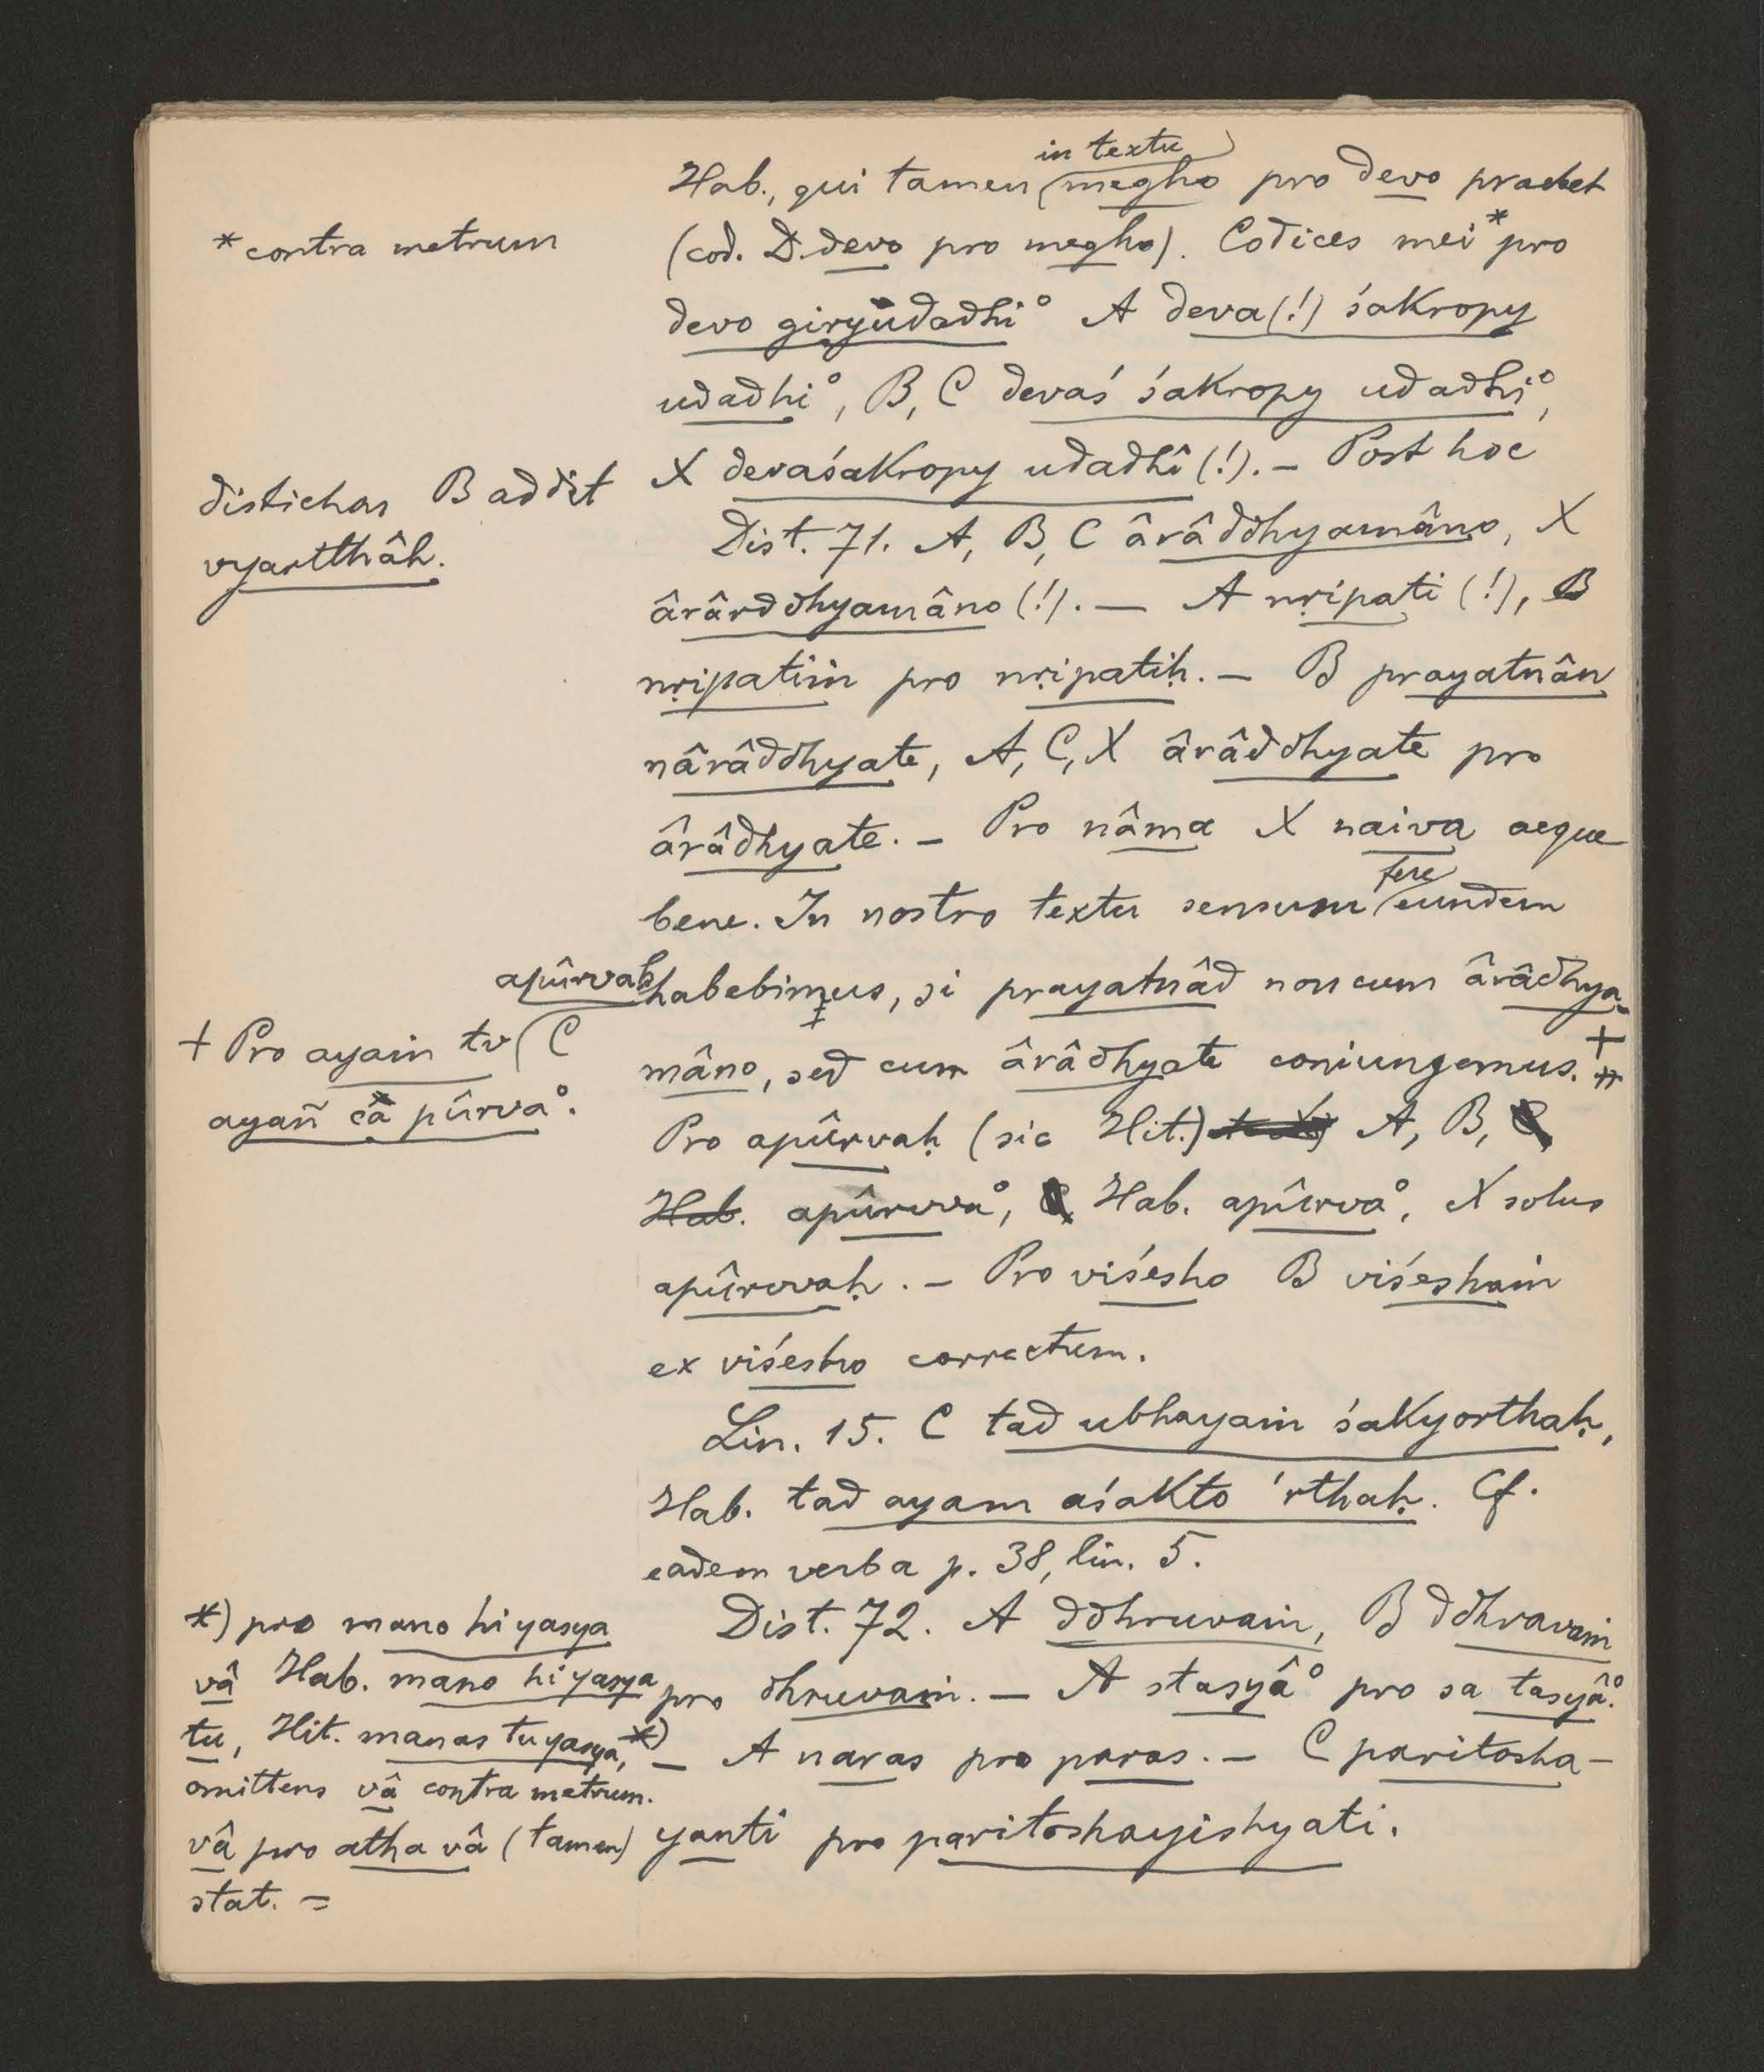 in textu
Hab., qui tamen megho pro devo praebet
*contra metrum
(cod. D. devo pro megho). Codices mei * pro
devo giryudadhi° A deva (!) śakropy
udadhi°, B, C devaś śakropy udadhi°,
X devaśakropy udadhî (!). – Post hoc
distichon B addit
vyartthâh.
Dist. 71. A, B, C ârâddhyamâno, X
ârârddhyamâno (!). — A nṛipati (!), B
nṛipatiṁ pro nṛipatiḥ. – B prayatnân
nârâddhyate, A, C, X ârâddhyate pro
ârâdhyate. – Pro nâma X naiva aeque
fere
bene. In nostro textu sensum eundem
habebimus, si prayatnâd non cum ârâdhya-
mâno, sed cum ârâdhyate coniungemus. +
apûrvaḥ
+ Pro ayaṁ tv C
ayañ câ pûrva°.
Pro apûrvaḥ (sic Hit.) A, B,
Hab. apûrvva°, Hab. apûrva°, X solus
apûrvvaḥ. – Pro viśesho B viśeshaṁ
ex viśesho correctum.
Lin. 15. C tad ubhayaṁ śakyorthaḥ,
Hab. tad ayam aśakto 'rthaḥ. Cf.
eadem verba p. 38, lin. 5.
Dist. 72. A ddhruvaṁ, B ddhravaṁ
pro dhruvaṁ. — A stasyâ° pro sa tasyâ°.
*) – A naras pro paras. – C paritosha-
yanti pro paritoshayishyati.
*) pro mano hi yasya
vâ Hab. mano hi yasya
tu, Hit. manas tu yasya,
omittens vâ contra metrum.
vâ pro atha vâ (tamen)
stat. =